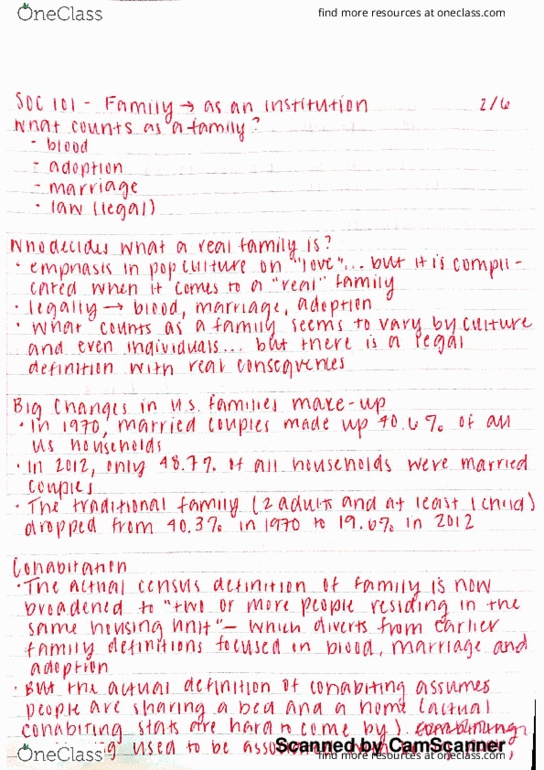 OneClass
find more resources at oneclass.com
SOC 101 - Family → as an institution 2/6
What counts as a family?
- blood
- adoption
- marriage
- law (legal)
Who decides what a real family is?
· emphasis in pop culture on "love"... but it is compli-
cated when it comes to a "real" family
· legally → blood, marriage, adoption
· what counts as a family seems to vary by culture
and even individuals... but there is a legal
definition with real consequences
Big Changes in U.S. families make-up
· In 1970, married couples made up 70.6% of all
US households
· In 2012, only 48.7% of all households were married
couples
· The traditional family (2 adults and at least 1 child)
dropped from 40.3% in 1970 to 19.6% in 2012
Cohabitation
· The actual census definition of family is now
broadened to "two or more people residing in the
same housing unit" – which diverts from earlier
family definitions focused in blood, marriage and
adoption
· But the actual definition of cohabiting assumes
people are sharing a bed and a home (actual
cohabiting stats are hard to come by).
used to be
Scanned by CamScanner
OneClass
find more resources at oneclass.com